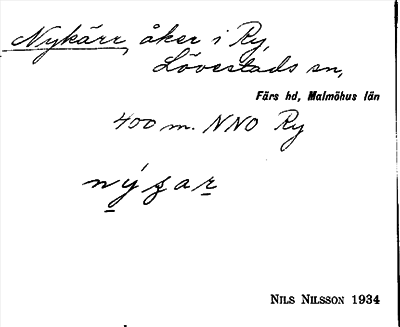 Nykärr, åker i Ry,
Lövestads sn,
Färs hd, Malmöhus län
400 m. NNO Ry
NILS NILSSON 1934